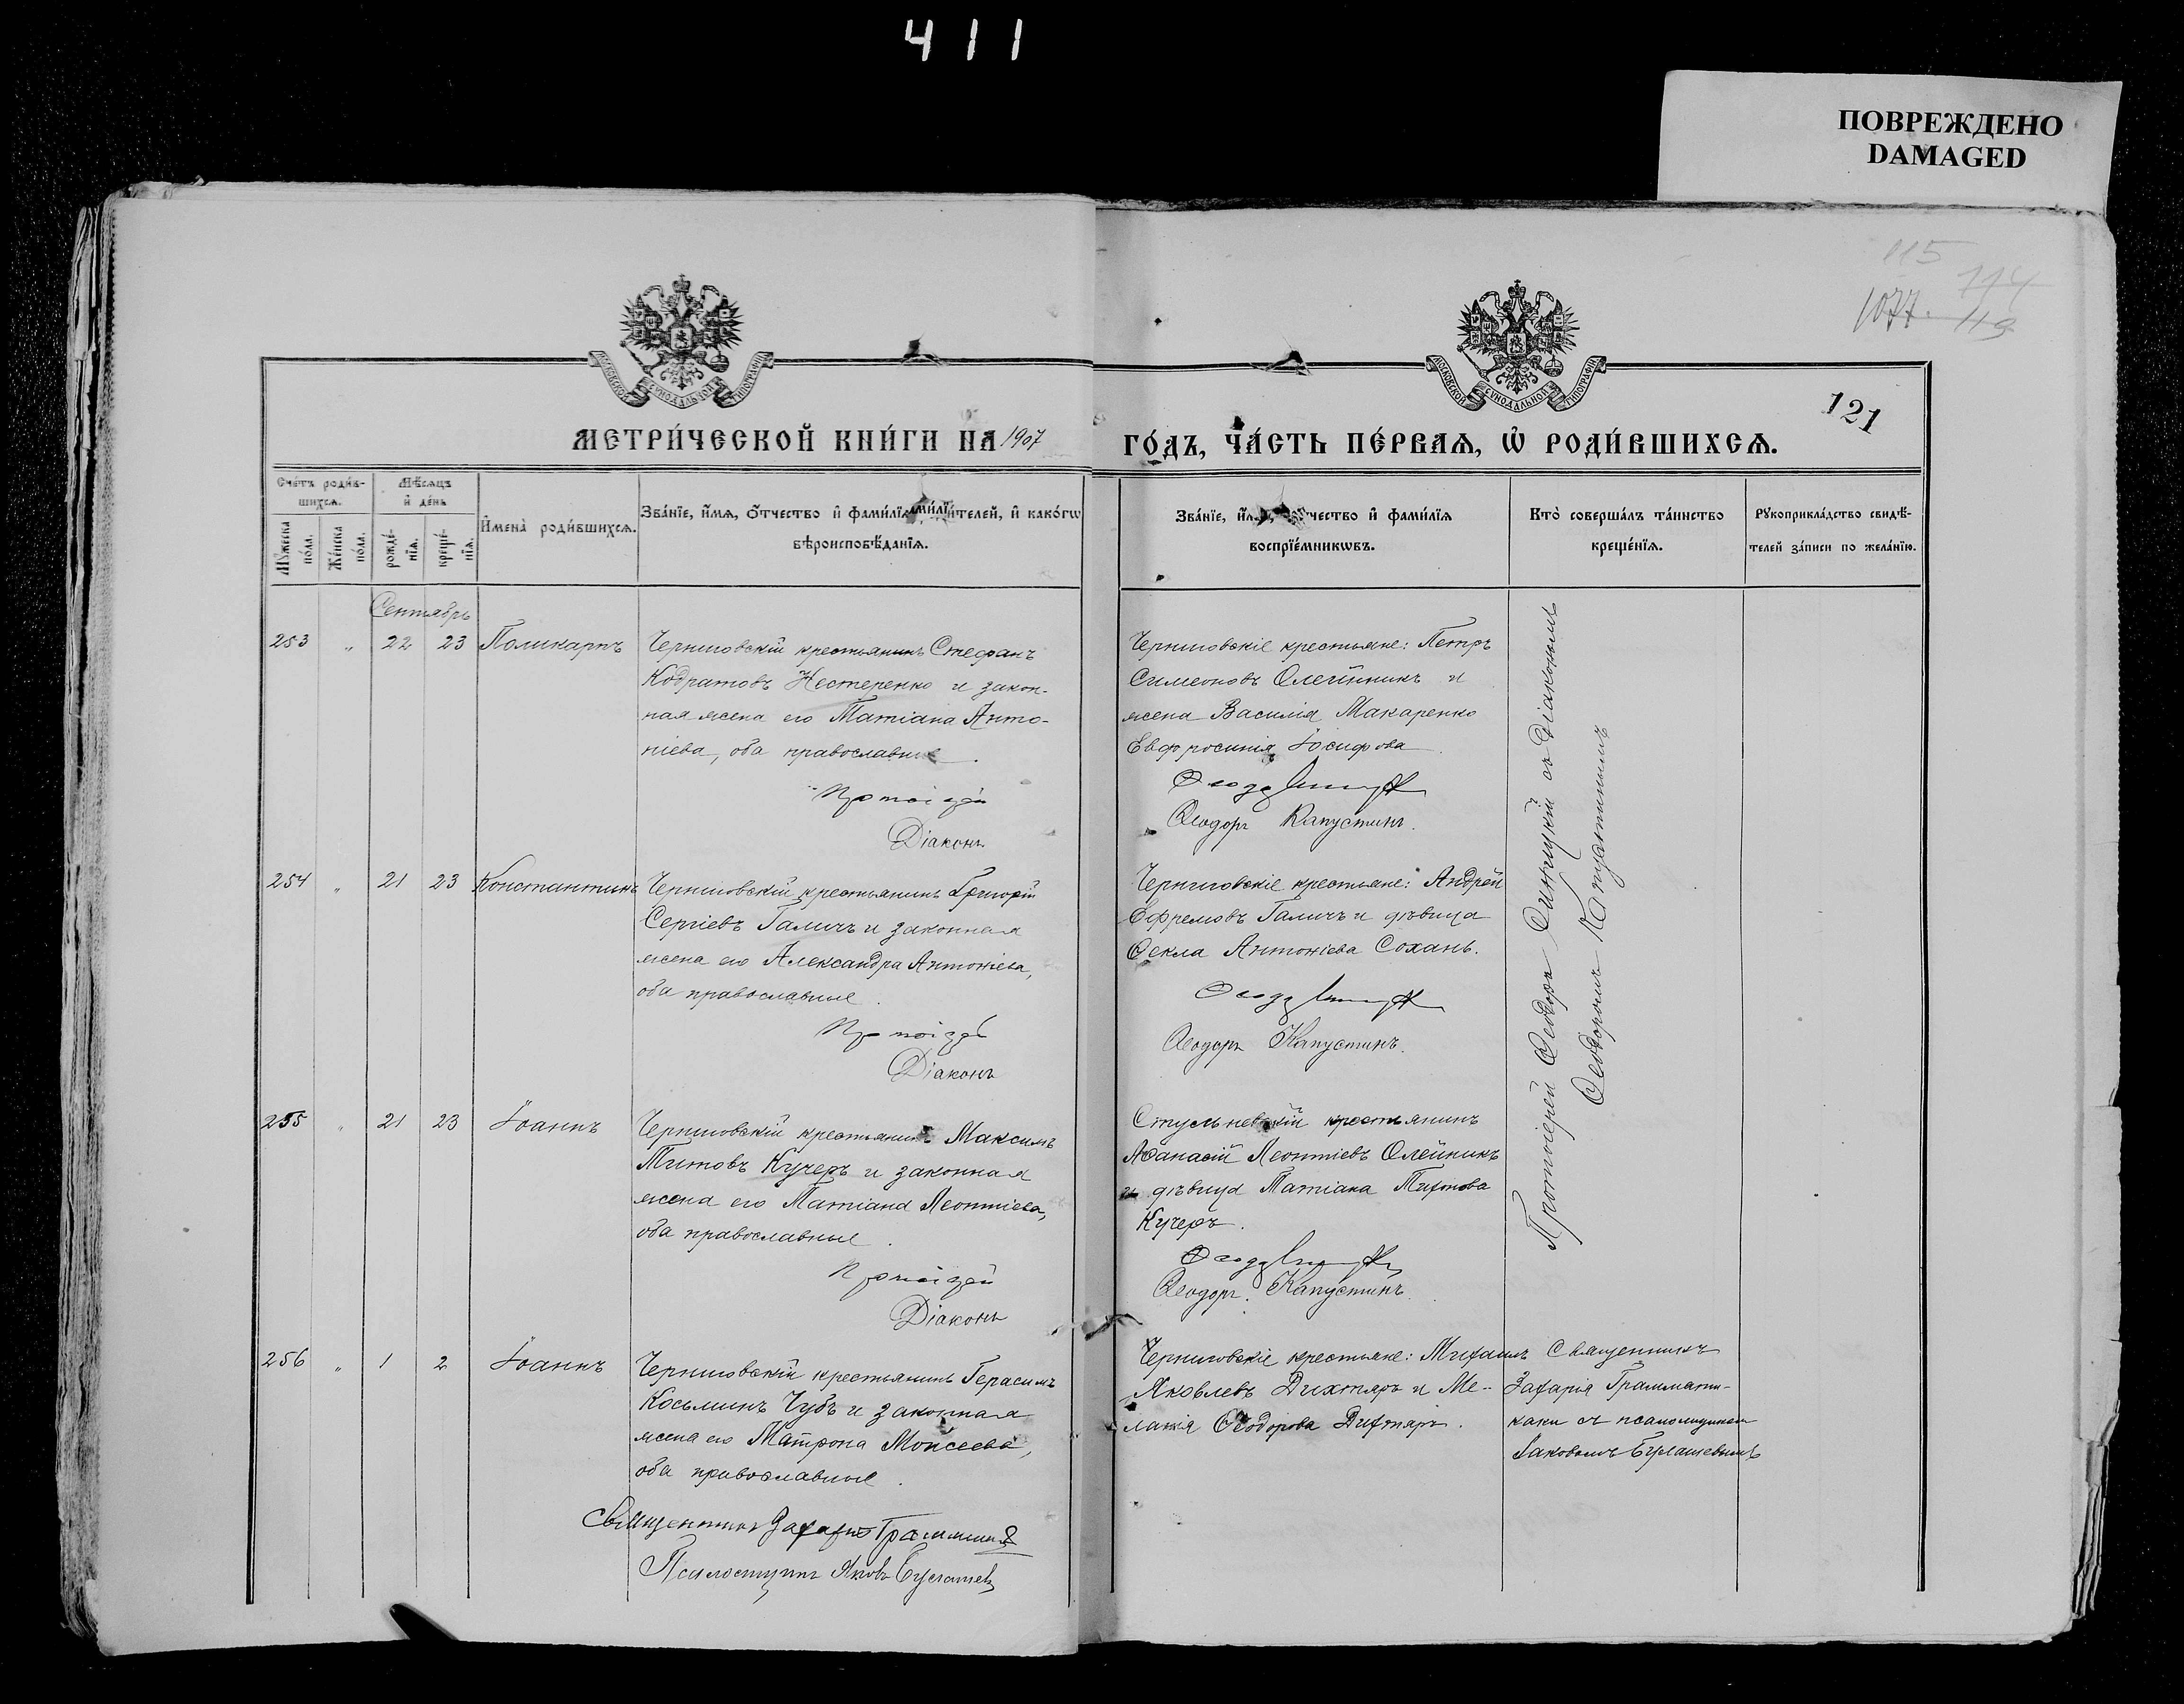 411
ПОВРЕЖДЕНО
DAMAGED
115
114
1077.
119
121
МОСКОВСКОЙ СУНОДАЛЬНОЙ ТИПОГРАФІИ
МОСКОВСКОЙ СУНОДАЛЬНОЙ ТИПОГРАФІИ
МЕТРИ́ЧЕСКОЙ КНИ́ГИ НА 1907
ГО́ДЪ, ЧА́СТЬ ПЕ́РВАѦ, Ѡ҆ РОДИ́ВШИХСѦ.
Сче́тъ роди́в-
шихсѧ.
Мꙋ́жеска по́ла.
Же́нска по́ла.
Мѣ́сѧцъ
и҆ де́нь
рожде́-
нїѧ.
креще́-
нїѧ.
И҆мена̀ роди́вшихсѧ.
Зва́нїе, и҆́мѧ, ѻ҆́тчество и҆ фами́лїѧ роди́телей, и҆ како́гѡ
вѣроисповѣ́данїѧ.
Зва́нїе, и҆́мѧ, ѻ҆́тчество и҆ фами́лїѧ
воспрїе́мникѡвъ.
Кто̀ соверша́лъ та́инство
креще́нїѧ.
Рꙋкоприкла́дство свидѣ́-
телей за́писи по жела́нїю.
Сентябрь
253 " 22 23 Поликарпъ
Черниговскій крестьянинъ Стефанъ
Кодратовъ Нестеренко и закон-
ная жена его Татіана Анто-
ніева, оба православные.
Протоіерей
Діаконъ
Черниговскіе крестьяне: Петръ
Симеоновъ Олейникъ и
жена Василія Макаренко
Евфросинія Іосифова
Ѳеодоръ Капустинъ.
Протоіерей Ѳеодоръ съ Діакономъ
Ѳеодоромъ Капустинымъ
254 " 21 23 Константинъ
Черниговскій крестьянинъ Григорій
Сергіевъ Галичъ и законная
жена его Александра Антоніева,
оба православные.
Протоіерей
Діаконъ
Черниговскіе крестьяне: Андрей
Ефремовъ Галичъ и дѣвица
Ѳекла Антоніева Сохань.
Ѳеодоръ Капустинъ.
255 " 21 23 Іоаннъ
Черниговскій крестьянинъ Максимъ
Титовъ Кучеръ и законная
жена его Татіана Леонтіева,
оба православные.
Протоіерей
Діаконъ
крестьянинъ
Аѳанасій Леонтіевъ Олейникъ
и дѣвица Татіана Титова
Кучеръ.
Ѳеодоръ Капустинъ
256 " 1 2 Іоаннъ
Черниговскій крестьянинъ Герасимъ
Косьминъ Чубъ и законная
жена его Матрона Моисеева,
оба православные.
Священникъ Захарія
Псаломщикъ Яковъ
Черниговскіе крестьяне: Михаилъ
Яковлевъ Дихтяръ и Ме-
ланія Ѳеодорова Дихтяръ.
Священникъ
Захарія Граммати-
кати съ псаломщикомъ
Іаковомъ